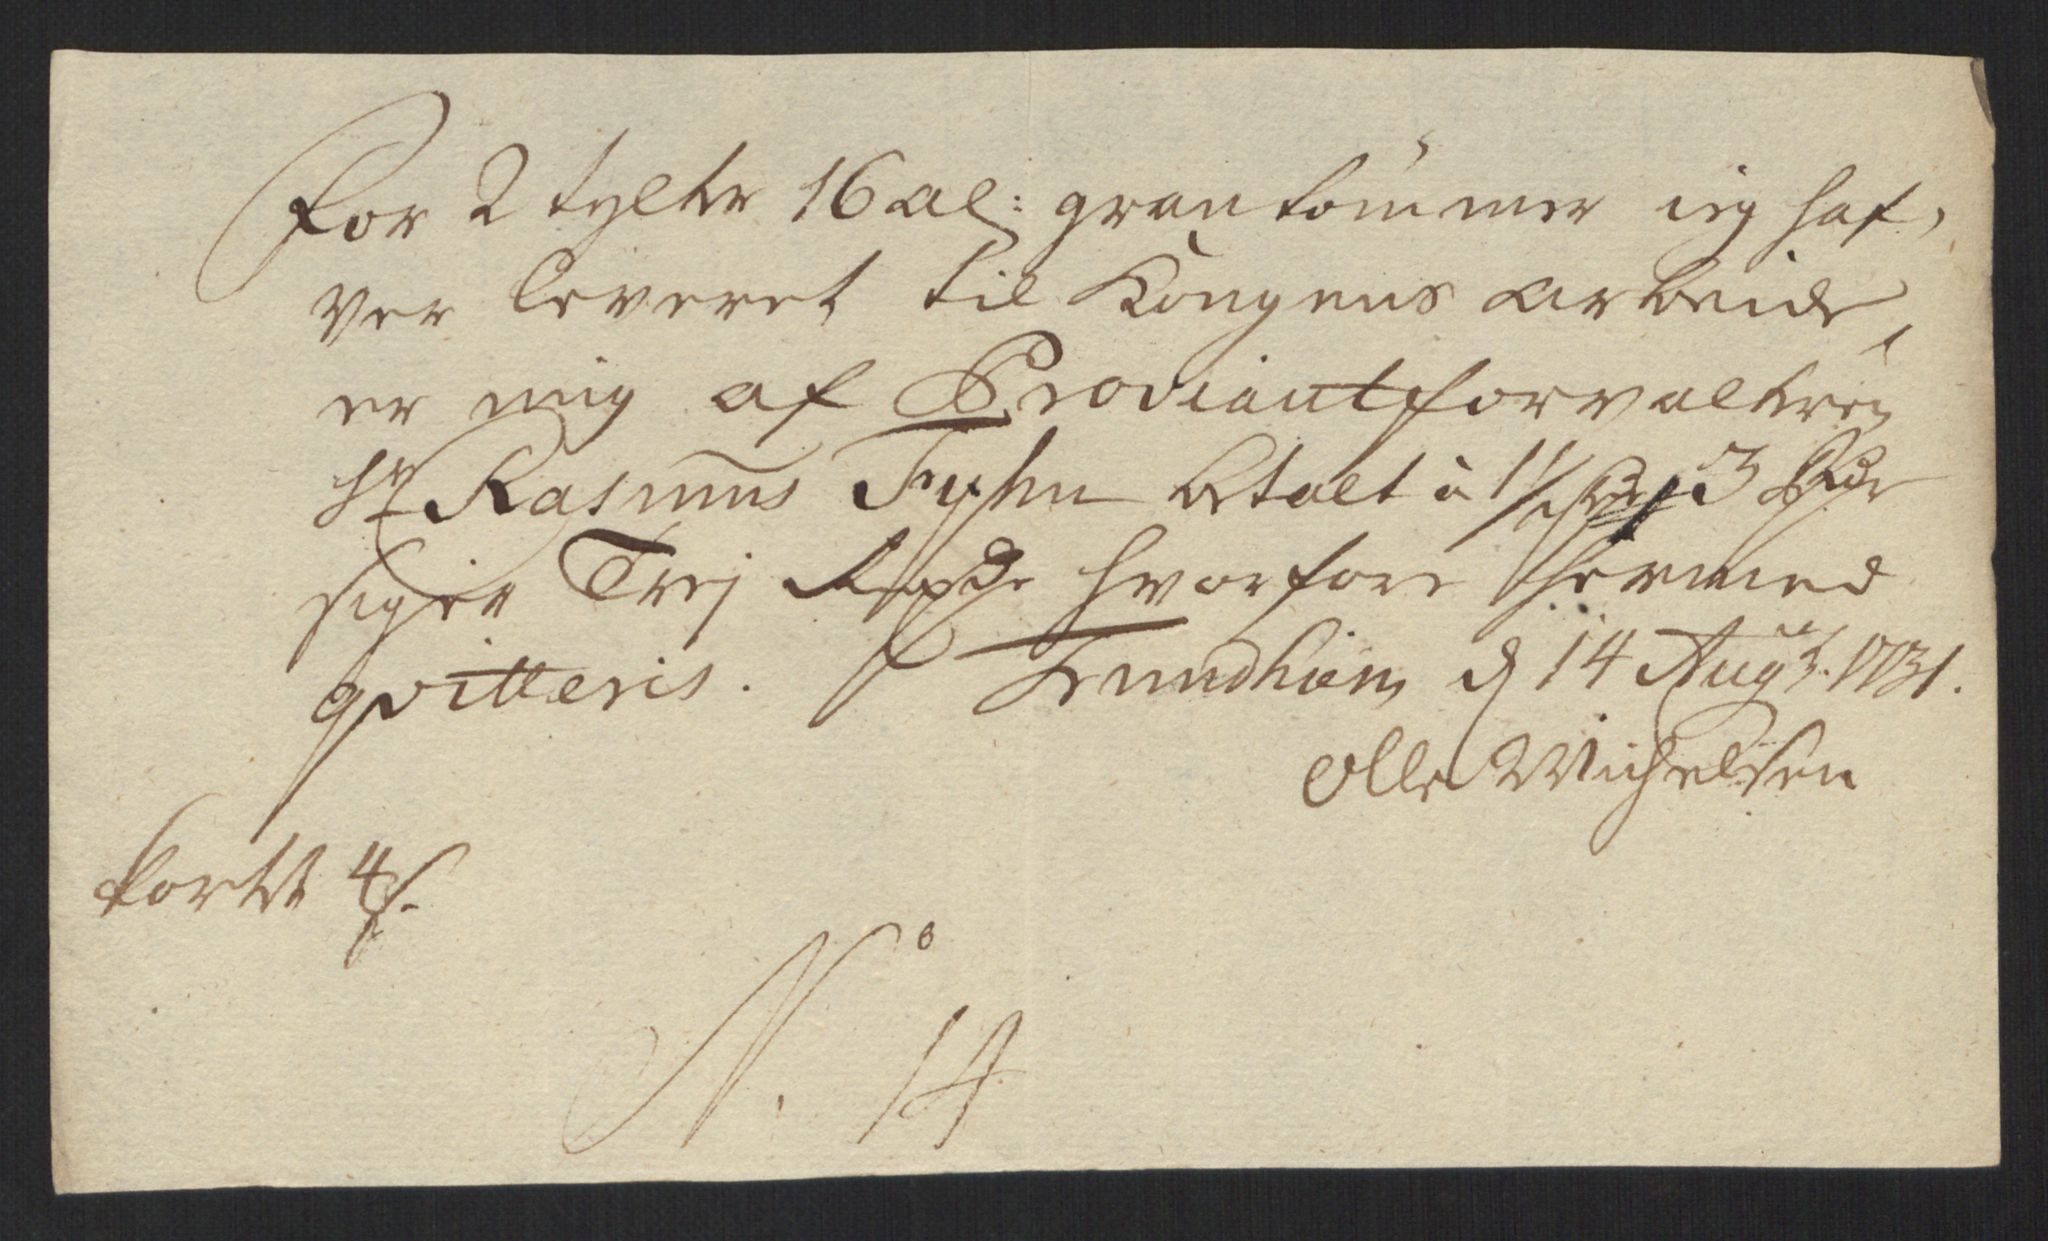 For 2 tylter 16 al: grantömmer ieg haf,
ver leveret til Kongens arbeide,
er mig af Proviantforvalteren
Hr Rasmus Fyhn betalt à 1½ 3 Rdr
siger Trej Rixdr hvorfore hermed
qvitteris. Trundhiem d 14 Augst. 1731.
Olle Michelsen
kortt 4 s.
No. 14